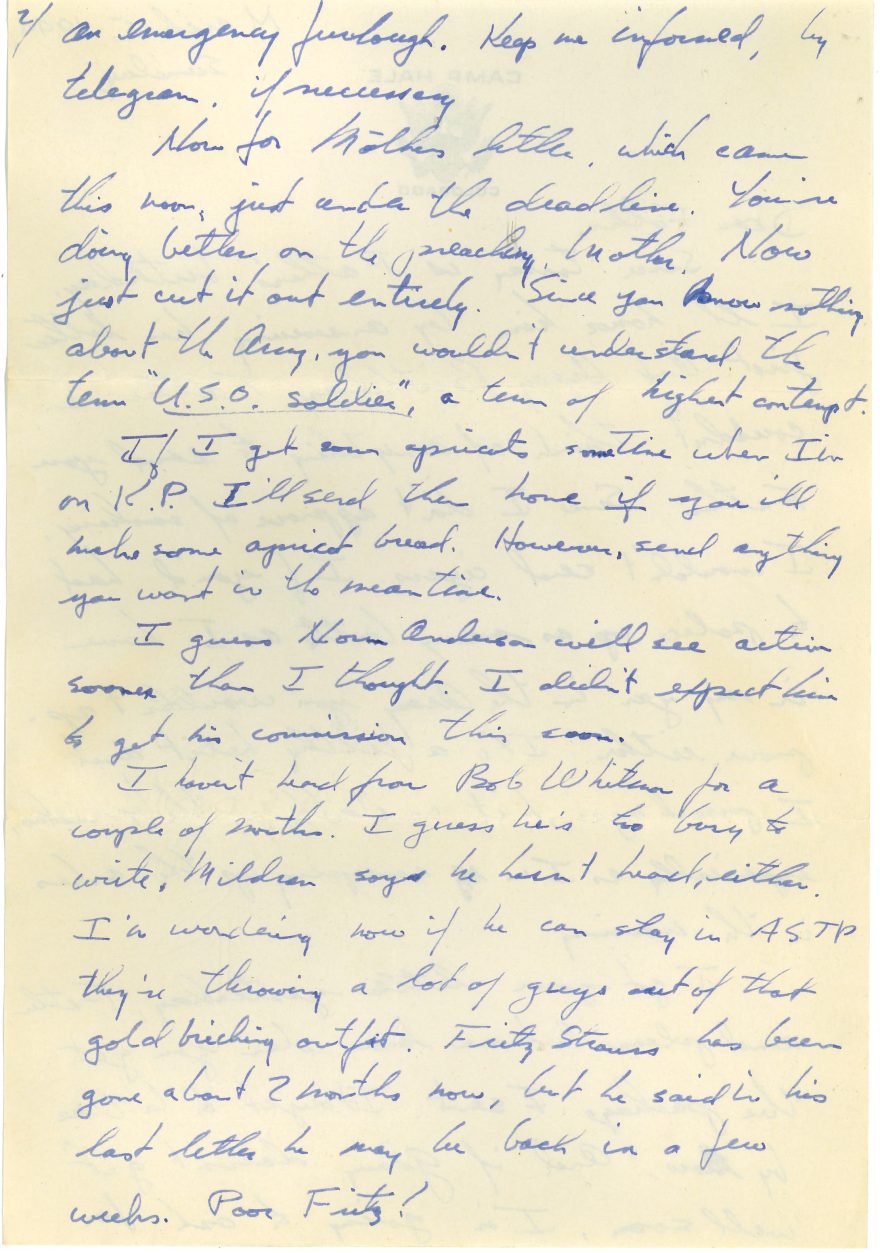 2/ an emergency furlough. Keep me informed, by
telegram, if necessary
Now for Mother's letter, which came
this noon, just under the deadline. You're
doing better on the preaching, Mother. Now
just cut it out entirely. Since you know nothing
about the Army, you wouldn't understand the
term "U.S.O. soldier", a term of highest contempt.
If I get some apricots sometime when I'm
on K.P. I'll send them home if you'll
make some apricot bread. However, send anything
you want in the meantime.
I guess Norm Anderson will see action
sooner than I thought. I didn't expect him
to get his commission this soon.
I haven't heard from Bob Whitman for a
couple of months. I guess he's too busy to
write, Mildren says he hasn't heard, either.
I'm wondering now if he can stay in ASTP
they're throwing a lot of guys out of that
gold bricking outfit. Fritz Strauss has been
gone about 2 months now, but he said in his
last letter he may be back in a few
weeks. Poor Fritz!